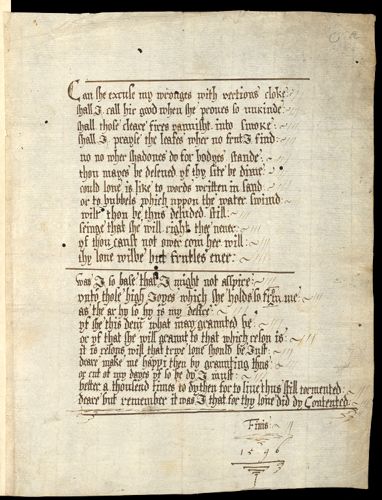 Can she excuse my wronges with vertious cloke
shall I call hir good when she proues so unkinde
shall those cleare fires vannisht into smoke
shall I prayse the leafes wher no frut I find
no no wher shadones do for bodyes stande
thou mayes be deleued yf thy site be dime
could loue is like to words written in sand
or to bubbels which uppon the water swimd
wilt thon be thus deluded still
seinge that she will right thee neuer
yf thou canst not ower com her will
thy loue wilbe but frutles euer
was I so base that I might not asspire
unto those high Joyes which she holds so from me
as the ar hy so hy is my desire
yf she this deny what may grannted be
or yf that she will graunt to that which reson is
it is resons will that trwe loue should be Just
deare make me happi then by graunting this
or cut of my dayes yf so be dy I must
better a thousend times to dy then for to liue thus still tormented
deare but remember it was I that for thy loue did dy Contented
Finis
1596